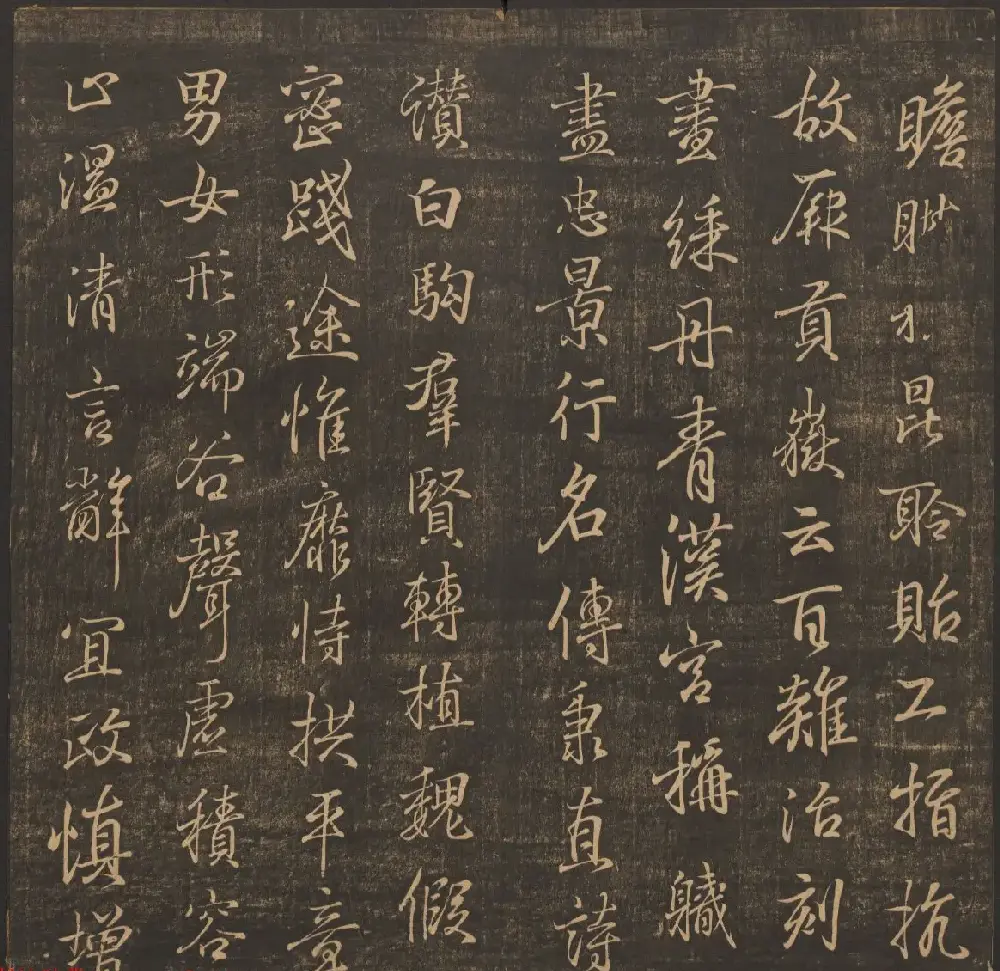 瞻昆聆貽工指抗
故厥貢嶽云百雜治刻
畫綵丹青漢宮稱軄
盡忠景行名傳秉直詩
讚白駒羣賢轉植魏假
密踐途惟靡恃拱平章
男女形端谷聲虛積容
止溫清言辭宜政慎增